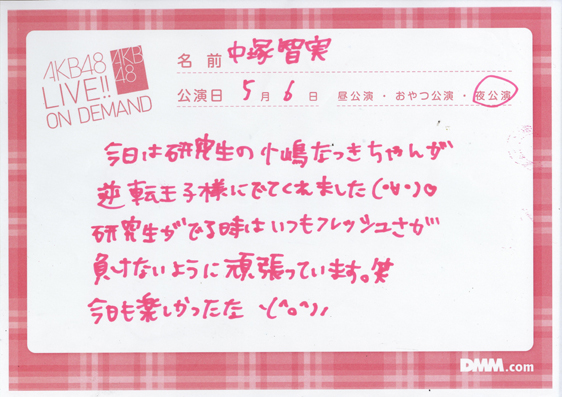 AKB48
LIVE!!
ON DEMAND
AKB
48
名前 中塚智実
公演日 5月6日 昼公演・おやつ公演・夜公演
今日は研究生の小嶋なつきちゃんが
逆転王子様にでてくれました(・∀・)♡
研究生がでる時はいつもフレッシュさが
負けないように頑張っています。笑
今日も楽しかったな ヽ(^o^)ノ
DMM.com